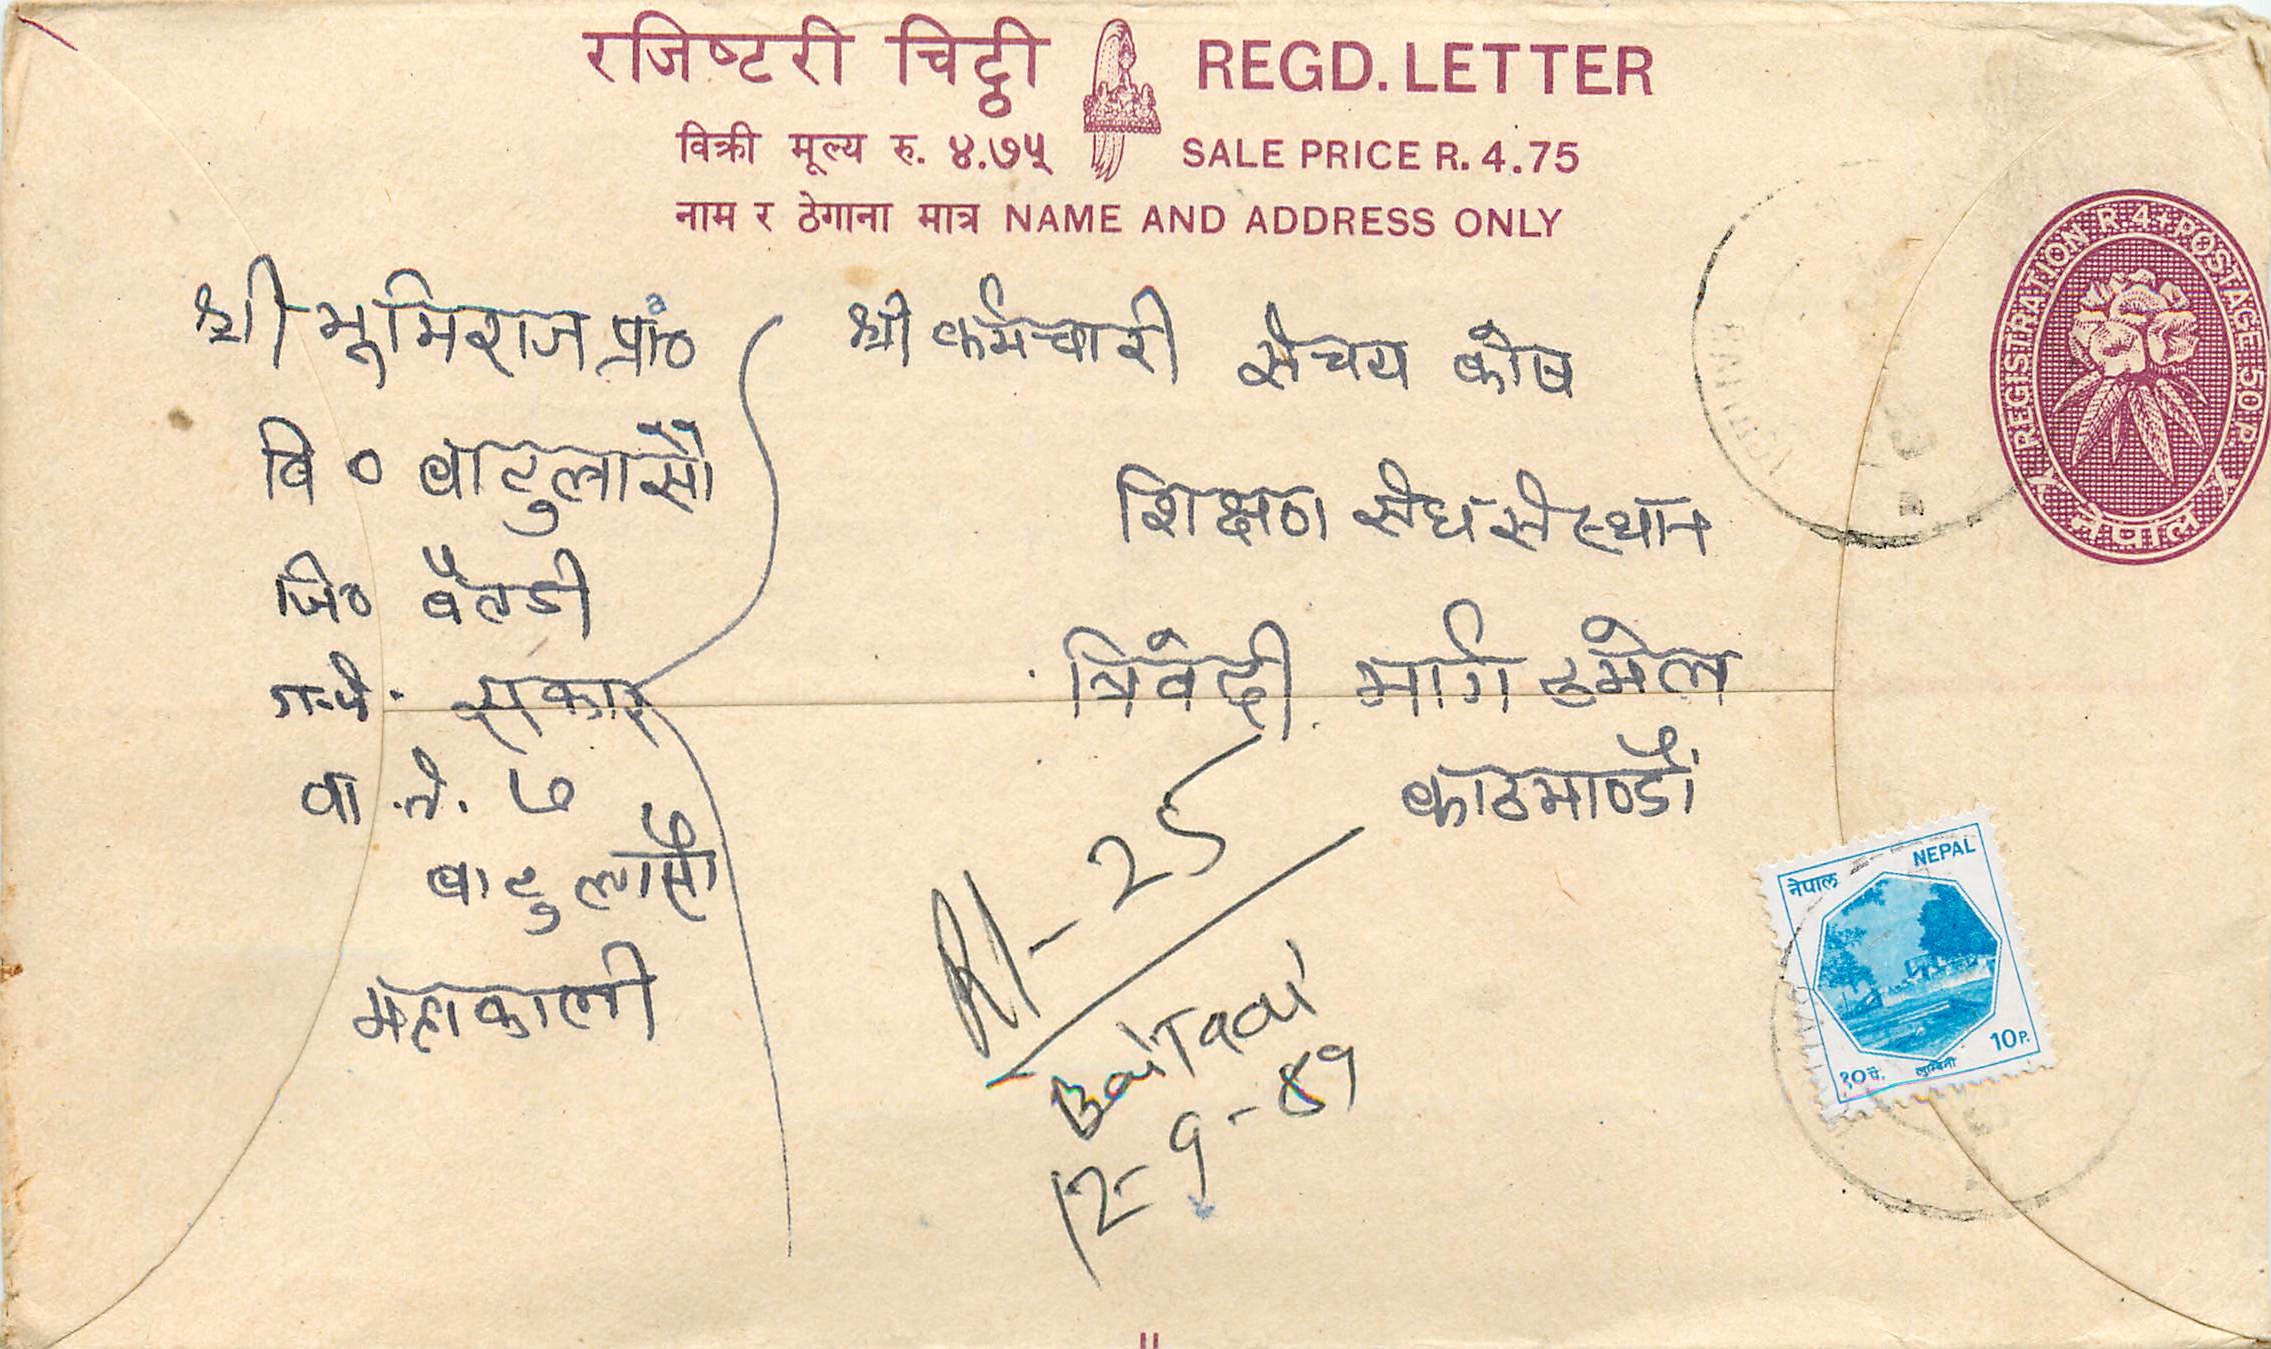 रजिष्टरी चिट्ठी REGD. LETTER
विक्री मूल्य रु. ४.७५ SALE PRICE R. 4.75
नाम र ठेगाना मात्र NAME AND ADDRESS ONLY
REGISTRATION R.4+POSTAGE 50 P.
नेपाल
श्री भूमिराज प्रा०
वि० बाटुलासौं
जि० बैतडी
ग.पं. सकार
वा.नं. ७
बाटुलासौं
महाकाली
श्री कर्मचारी संचय कोष
शिक्षण संघ संस्थान
त्रिवेदी मार्ग ठमेल
काठमाण्डौं
R1-25
Baitadi
12-9-89
NEPAL
नेपाल
10P.
१०पै. लुम्बिनी